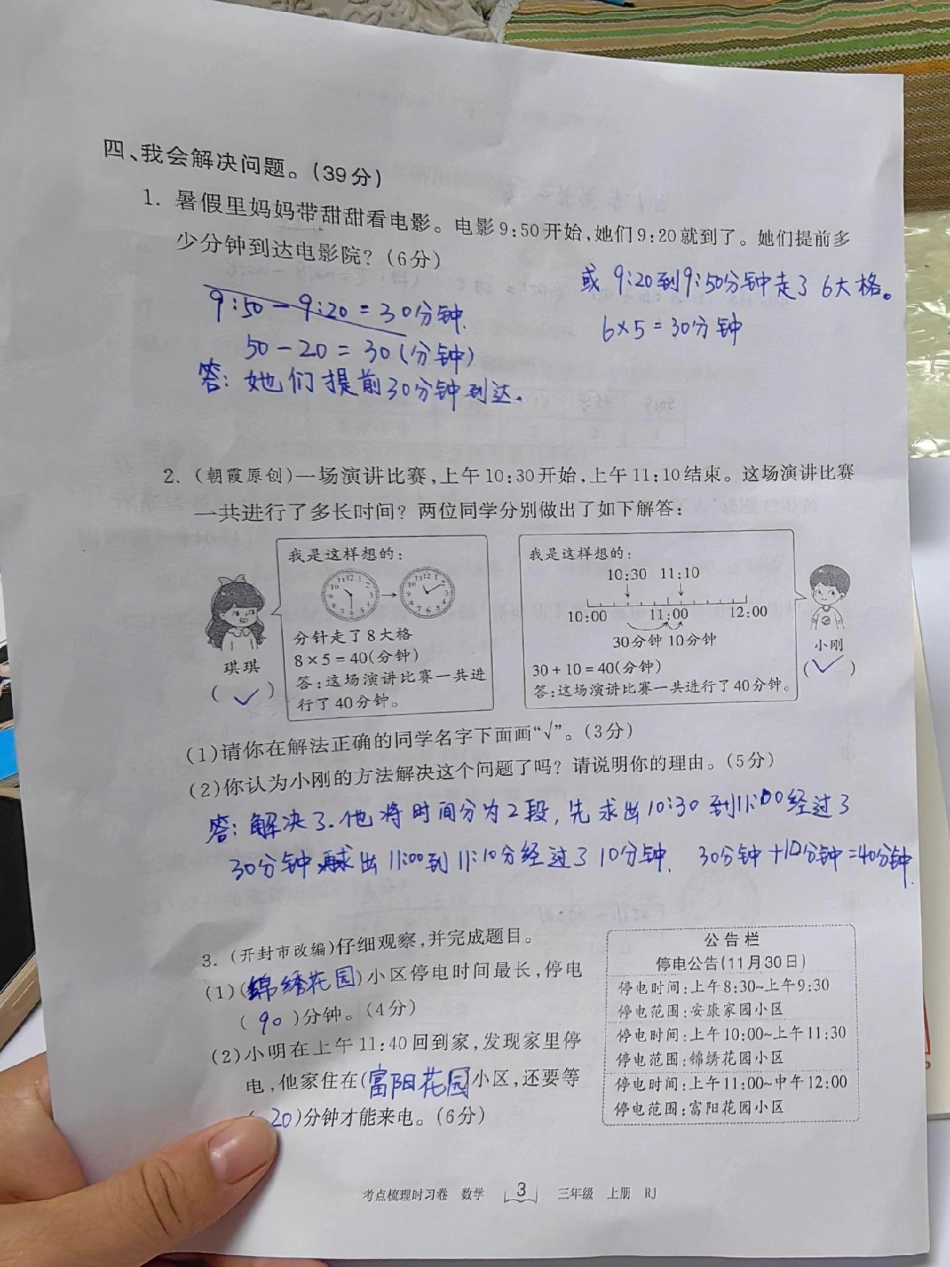 四、我会解决问题。(39分)
1. 暑假里妈妈带甜甜看电影。电影9:50开始,她们9:20就到了。她们提前多
少分钟到达电影院?(6分)
9:50-9:20=30分钟.
50-20=30(分钟)
答:她们提前30分钟到达.
或 9:20到9:50分钟走了6大格。
6×5=30分钟
2. (朝霞原创)一场演讲比赛,上午10:30开始,上午11:10结束。这场演讲比赛
一共进行了多长时间?两位同学分别做出了如下解答:
我是这样想的:
分针走了8大格
8×5=40(分钟)
答:这场演讲比赛一共进
行了40分钟。
琪琪
(✓)
我是这样想的:
10:30 11:10
10:00 11:00 12:00
30分钟 10分钟
30+10=40(分钟)
答:这场演讲比赛一共进行了40分钟。
小刚
(✓)
(1)请你在解法正确的同学名字下面画“√”。(3分)
(2)你认为小刚的方法解决这个问题了吗?请说明你的理由。(5分)
答:解决了.他将时间分为2段,先求出10:30到11:00经过了
30分钟,再求出11:00到11:10分经过了10分钟. 30分钟+10分钟=40分钟.
3. (开封市改编)仔细观察,并完成题目。
(1)(锦绣花园)小区停电时间最长,停电
(90)分钟。(4分)
(2)小明在上午11:40回到家,发现家里停
电,他家住在(富阳花园)小区,还要等
20)分钟才能来电。(6分)
公告栏
停电公告(11月30日)
停电时间:上午8:30~上午9:30
停电范围:安康家园小区
停电时间:上午10:00~上午11:30
停电范围:锦绣花园小区
停电时间:上午11:00~中午12:00
停电范围:富阳花园小区
考点梳理时习卷 数学 3 三年级 上册 RJ